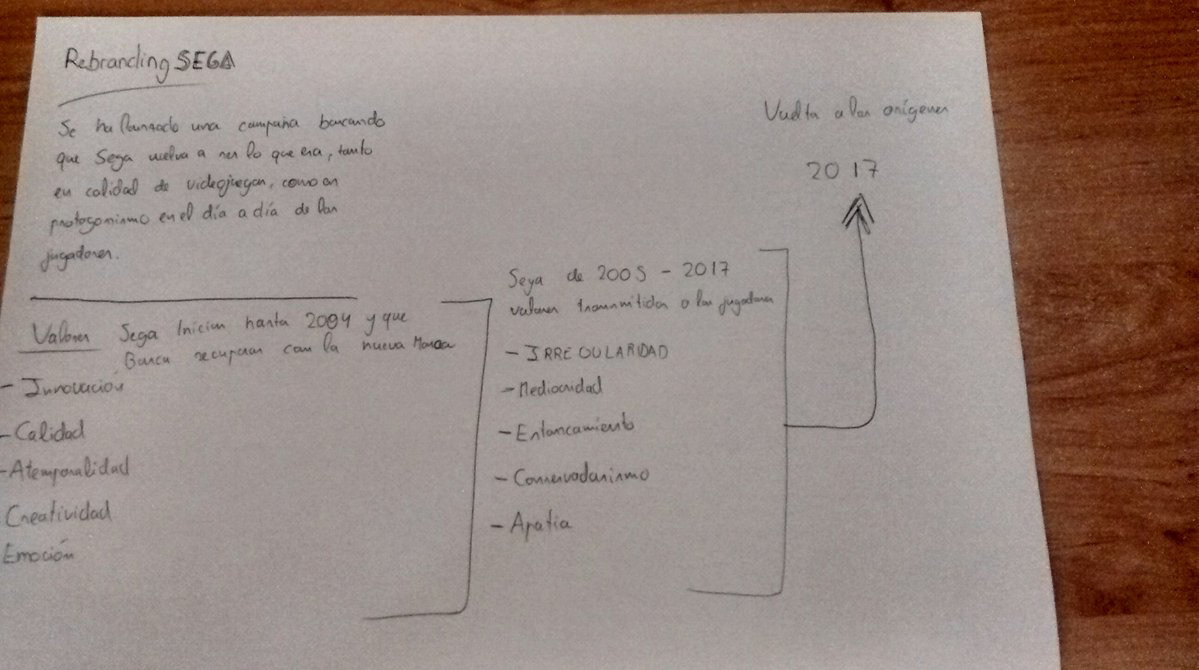 Rebranding SEGA
Se ha lanzado una campaña buscando
que Sega vuelva a ser lo que era, tanto
en calidad de videojuegos, como en
protagonismo en el día a día de los
jugadores.
Valores Sega Inicios hasta 2004 y que
Busca recuperar con la nueva Marca
- Innovación
- Calidad
- Atemporalidad
Creatividad
Emoción
Sega de 2005 - 2017
valores transmitidos a los jugadores
- IRREGULARIDAD
- Mediocridad
- Estancamiento
- Conservadurismo
- Apatia
Vuelta a los orígenes
2017